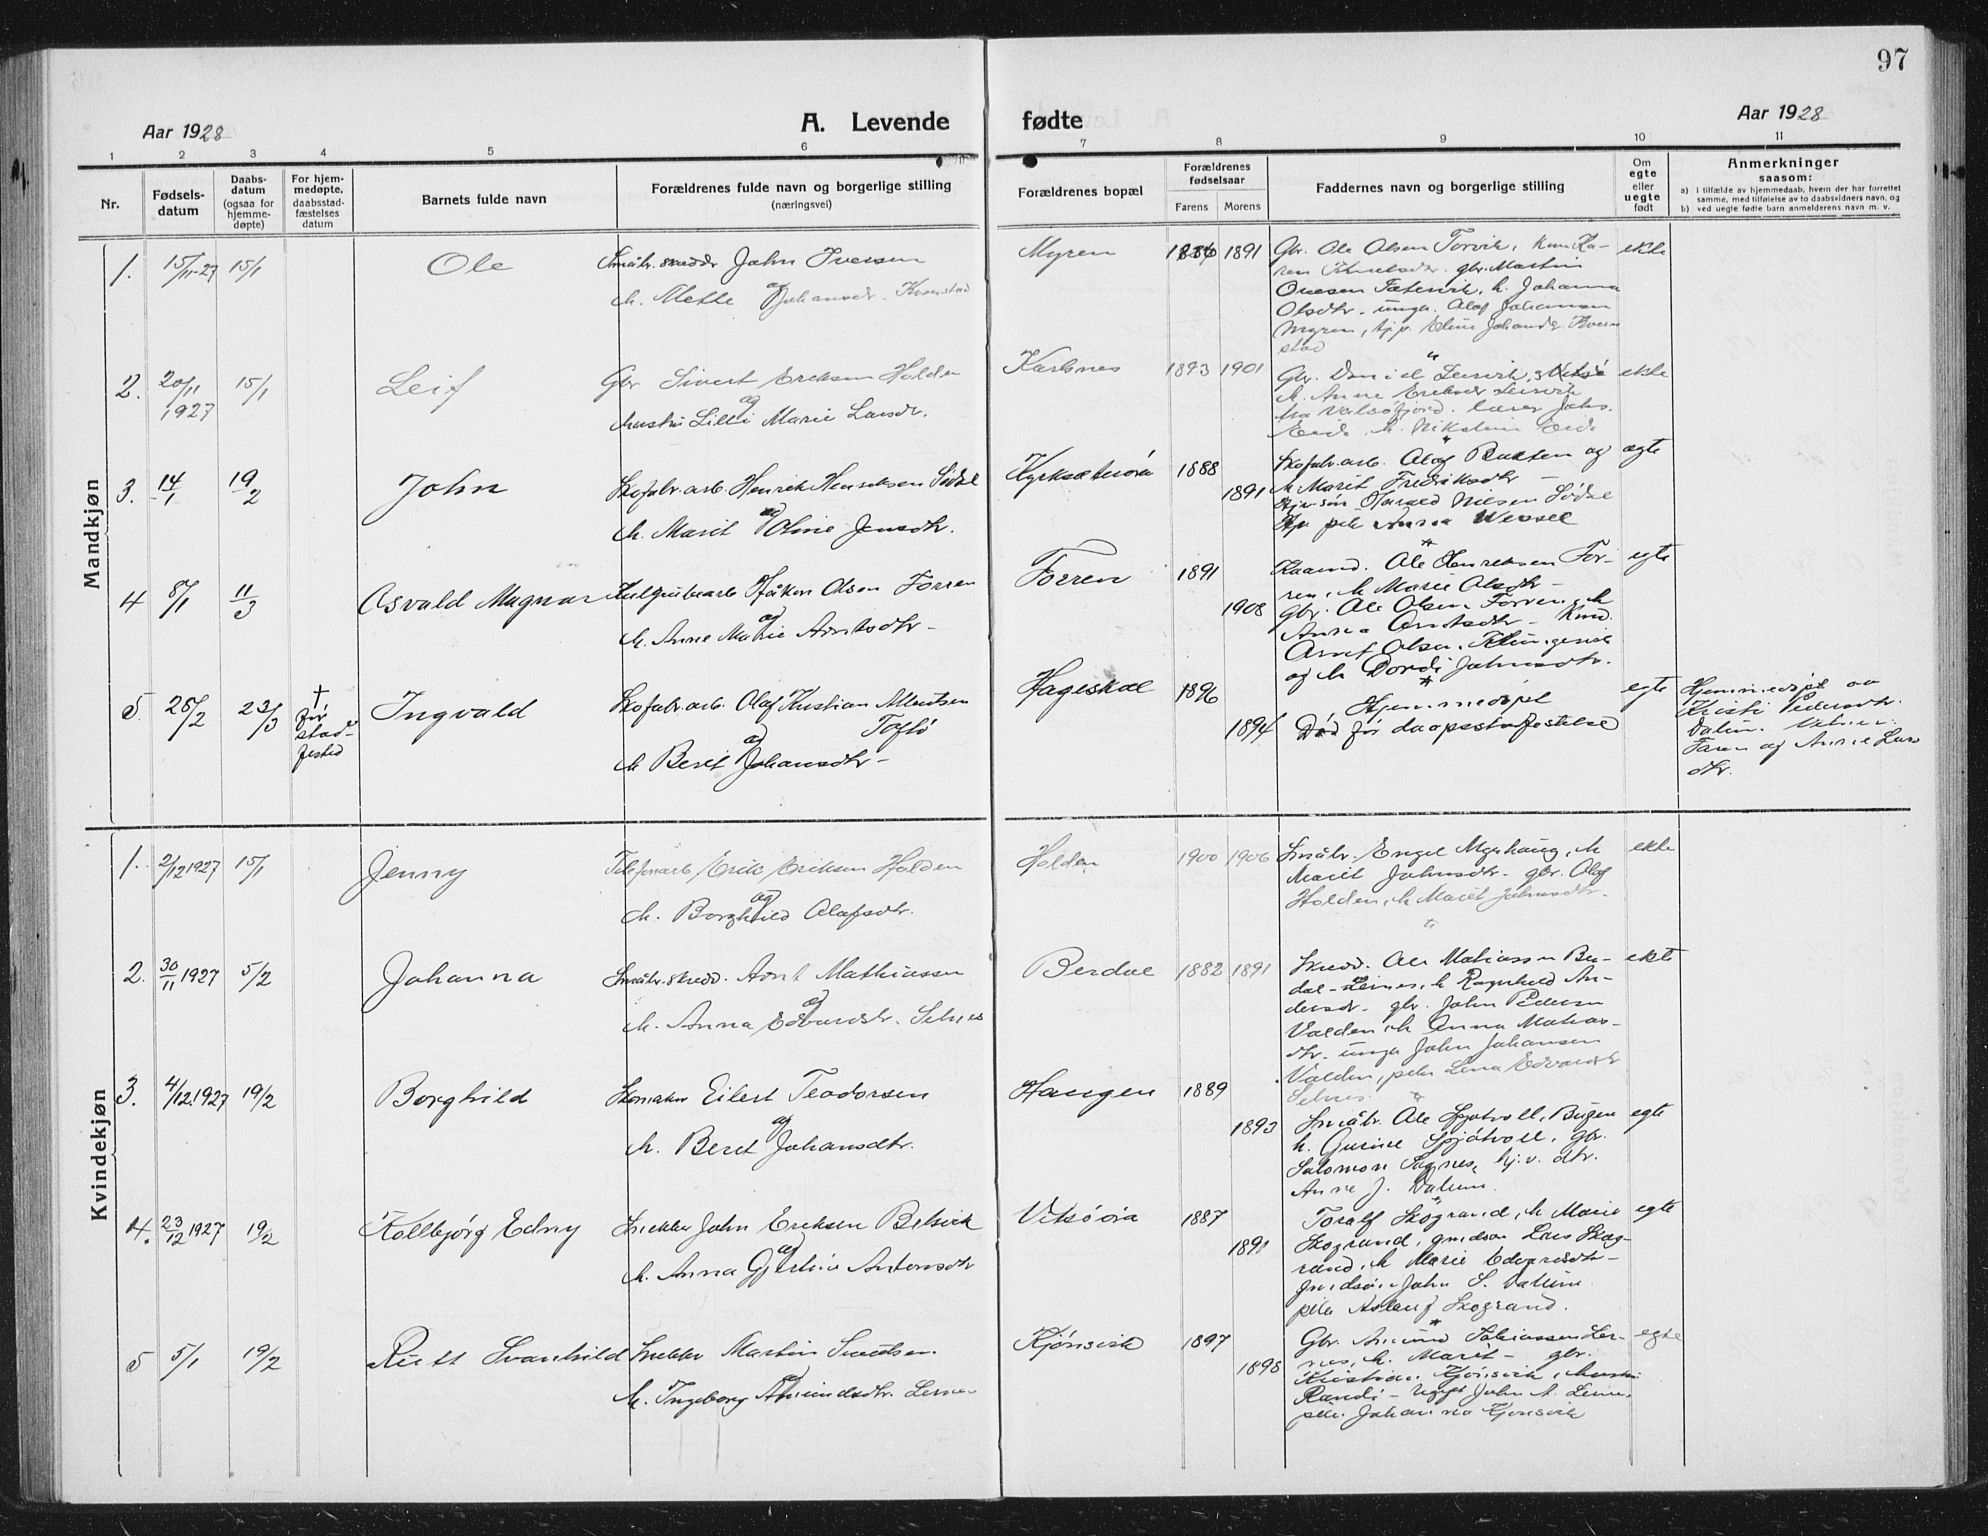 97
Aar 1928
A. Levende fødte
Aar 1928
1 2 3 4 5 6 7 8 9 10 11
Nr.
Fødsels-
datum
Daabs-
datum
(ogsaa for
hjemme-
døpte)
For hjem-
medøpte,
daabsstad-
fæstelses
datum
Barnets fulde navn
Forældrenes fulde navn og borgerlige stilling
(næringsvei)
Forældrenes bopæl
Forældrenes
fødselsaar
Farens Morens
Faddernes navn og borgerlige stilling
Om
egte
eller
uegte
født
Anmerkninger
saasom:
a) i tilfælde av hjemmedaab, hvem der har forrettet
samme, med tilføielse av to daabsvidners navn, og
b) ved uegte fødte barn anmelderens navn m. v.
Mandkjøn
1. 15/11-27 15/1 Ole
Småbr. skredder John Iversen
og
h. Mette Johansdr.
Myren 1891
Gbr. Ole Olsen Torvik,
gbr. Martin
h. Johanna
Olsdtr. unga. Olaf Johansen
Myren,
ekte
2. 20/11 1927 15/1 Leif
Gbr Sivert Eriksen Holden
og
hustru Lilli Marie Larsdr.
Karlsnes 1893 1901
Gbr. Daniel
h. Anne Eriksdr
fra Valsøfjord. lærer Johs.
Eide, h.
ekte
3. 14/1 19/2 John
Skofabr.arb. Henrik Henriksen Sødal
og
h. Marit Oline Jensdtr.
Kyrksæterøra 1888
1891
Skofabr.arb. Olaf og
h Marit Fredriksdtr –
Harald Nilsen Sødal
pike Anna Wessel
ægte
4 8/1 11/3 Osvald Magnar
Kulgrubearb Håkon Olsen Forren
og
h. Anne Marie Arntsdtr –
Forren 1891
1908
Ole Henriksen For-
ren, h Marie Olsdtr –
Gbr. Ole Olsen Forren, h
Anna
Arnt Olsen
og h Dordi Johnsdtr.
egte
5 25/2 23/3
† før
stad-
fested
Ingvald
Skofabr.arb. Olaf Kristian Albertsen
Toftø
og
h Berit Johansdtr –
Hageskal 1896
1894
Hjemmedøpt
Død før daapsstadfestelse
egte
Hjemmedøpt av
Kristi Pedersdtr.
Valum.
og Anne Lars
dtr.
Kvindekjøn
1. 2/12 1927 15/1 Jenny
Telefonarb Erik Eriksen Holden
og
h. Borghild Olafsdtr.
Holden 1900 1906
Småbr. Engel Myrhaug, h
Marit Johnsdtr. gbr. Olaf
Holden, h Marit Johnsdtr.
ekte
2. 30/11 1927 5/2 Johanna
Småbr. skredd. Arnt Mathiassen
og
h. Anna Edvardsdr. Selnes
Berdal 1882 1891
Skredd. Ole Matiassen Ber-
dal – h Ragnhild An-
dersdr. gbr. John Pedersen
Valden, h Anna Matias-
dtr. unga John Johansen
Valden, pike Lina Edvardsdr
Selnes.
ekte
3. 4/12.1927 19/2 Borghild
Skomaker Eilert Teodorsen
og
h. Beret Johansdtr.
Haugen 1889
1893
Småbr. Ole Spjøtvoll, Bugen
h. Gurine Spjøtvoll, gbr.
Salomon hj.v. dtr.
Anne J. Valum.
egte
4. 23/12 1927 19/2 Kolbjørg Edny
Snekker John Eriksen Belsvik
og
h. Anna Gjertine Antonsdtr
Viksøra 1887
1891
Toralf Skogrand, h Marie
Skogrand, Lars Skog-
rand, h Marie Edvardsdtr –
John S. Valum
pike Aslaug Skogrand.
egte
5 5/1 19/2 Rutt Svanhild
Snekker Martin
og
h. Ingeborg Amundsdtr. Lernes
Kjønsvik 1897
1898
Gbr. Amund Tobiassen Ler-
nes, h. Marit – gbr.
Kristian Kjønsvik, hustru
Randi – John A. Lernes,
pike Johanna Kjønsvik
egte